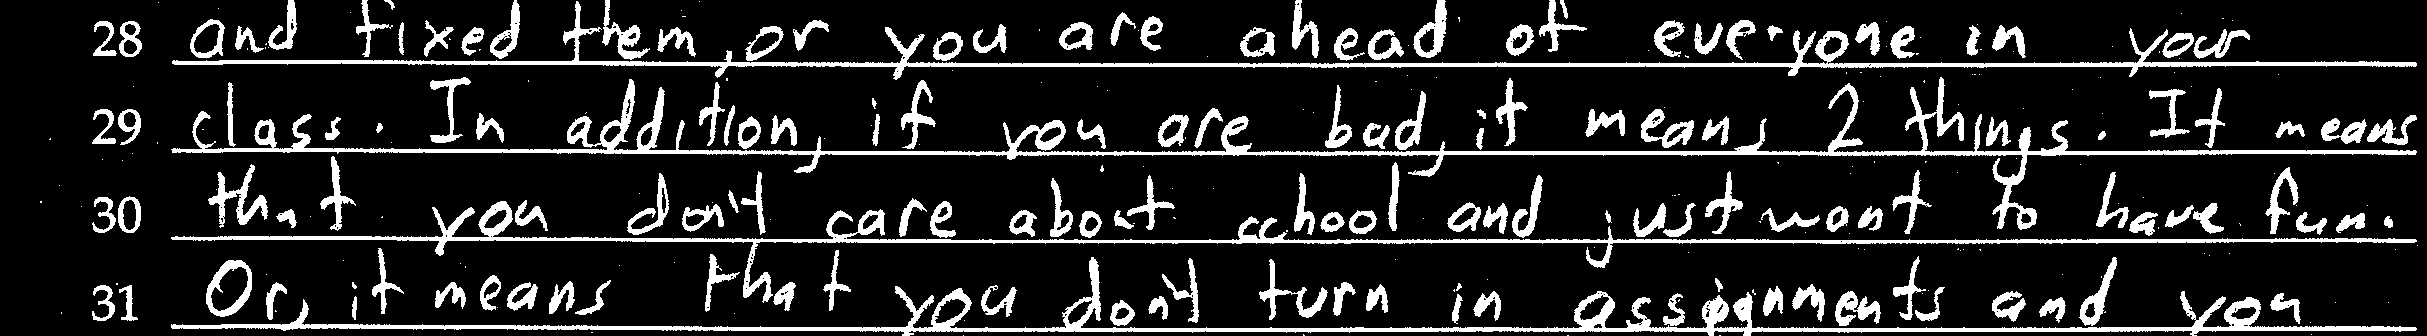 28 and fixed them, or you are ahead of everyone in your
29 class. In addition, if you are bad, it means 2 things. It means
30 that you don't care about school and just want to have fun.
31 Or, it means that you don't turn in assignments and you